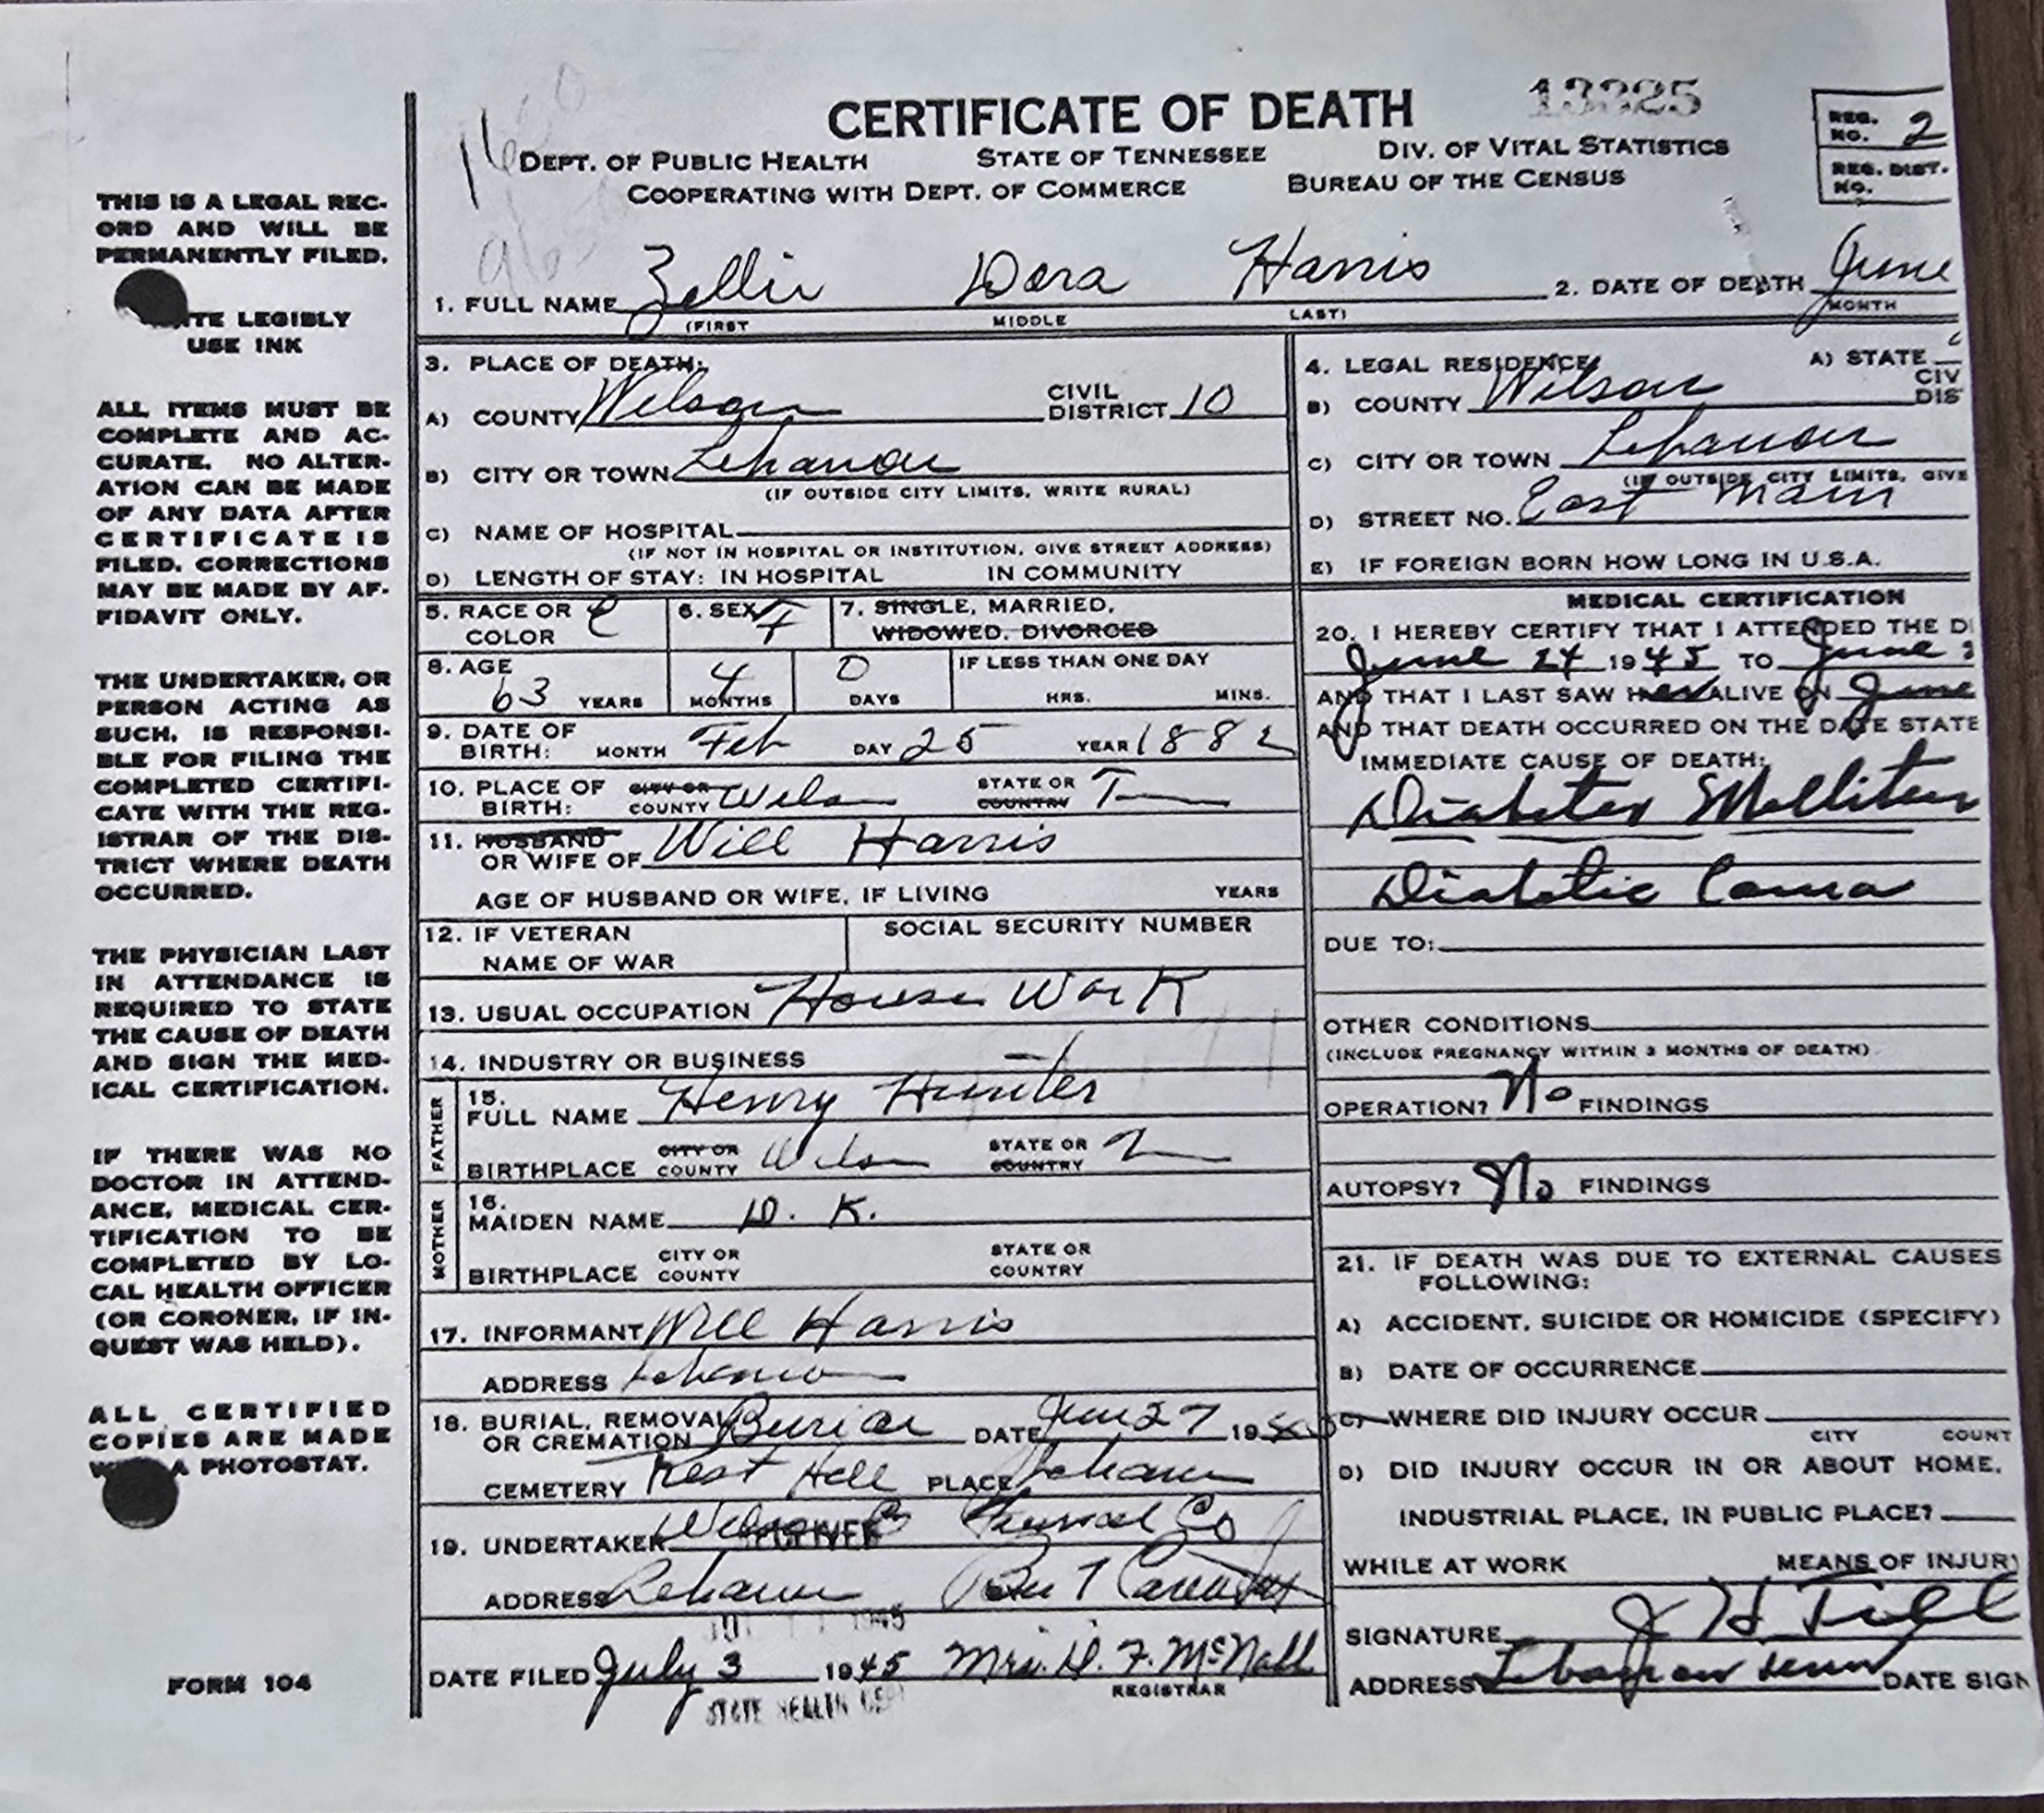 CERTIFICATE OF DEATH
DEPT. OF PUBLIC HEALTH STATE OF TENNESSEE DIV. OF VITAL STATISTICS
COOPERATING WITH DEPT. OF COMMERCE BUREAU OF THE CENSUS
REG. NO. 2
REG. DIST. NO.
THIS IS A LEGAL REC-
ORD AND WILL BE
PERMANENTLY FILED.
LEGIBLY
USE INK
ALL ITEMS MUST BE
COMPLETE AND AC-
CURATE. NO ALTER-
ATION CAN BE MADE
OF ANY DATA AFTER
CERTIFICATE IS
FILED. CORRECTIONS
MAY BE MADE BY AF-
FIDAVIT ONLY.
THE UNDERTAKER, OR
PERSON ACTING AS
SUCH, IS RESPONSI-
BLE FOR FILING THE
COMPLETED CERTIFI-
CATE WITH THE REG-
ISTRAR OF THE DIS-
TRICT WHERE DEATH
OCCURRED.
THE PHYSICIAN LAST
IN ATTENDANCE IS
REQUIRED TO STATE
THE CAUSE OF DEATH
AND SIGN THE MED-
ICAL CERTIFICATION.
IF THERE WAS NO
DOCTOR IN ATTEND-
ANCE, MEDICAL CER-
TIFICATION TO BE
COMPLETED BY LO-
CAL HEALTH OFFICER
(OR CORONER, IF IN-
QUEST WAS HELD).
ALL CERTIFIED
COPIES ARE MADE
A PHOTOSTAT.
FORM 104
1. FULL NAME Zellie Dora Harris 2. DATE OF DEATH June
(FIRST MIDDLE LAST) MONTH
3. PLACE OF DEATH:
A) COUNTY Wilson CIVIL DISTRICT 10
B) CITY OR TOWN Lebanon
(IF OUTSIDE CITY LIMITS, WRITE RURAL)
C) NAME OF HOSPITAL
(IF NOT IN HOSPITAL OR INSTITUTION, GIVE STREET ADDRESS)
D) LENGTH OF STAY: IN HOSPITAL IN COMMUNITY
5. RACE OR COLOR C 6. SEX F 7. SINGLE, MARRIED,
WIDOWED, DIVORCED
8. AGE 63 YEARS 4 MONTHS 0 DAYS IF LESS THAN ONE DAY
HRS. MINS.
9. DATE OF BIRTH: MONTH Feb DAY 25 YEAR 1882
10. PLACE OF BIRTH: CITY OR COUNTY Wilson STATE OR COUNTRY Tenn
11. HUSBAND
OR WIFE OF Will Harris
AGE OF HUSBAND OR WIFE, IF LIVING YEARS
12. IF VETERAN SOCIAL SECURITY NUMBER
NAME OF WAR
13. USUAL OCCUPATION House Work
14. INDUSTRY OR BUSINESS
FATHER
15.
FULL NAME Henry Hunter
BIRTHPLACE CITY OR COUNTY Wilson STATE OR COUNTRY
MOTHER
16.
MAIDEN NAME D. K.
BIRTHPLACE CITY OR COUNTY STATE OR COUNTRY
17. INFORMANT Will Harris
ADDRESS Lebanon
18. BURIAL, REMOVAL OR CREMATION Burial DATE Jun 27 1945
CEMETERY Rest Hill PLACE Lebanon
19. UNDERTAKER Wilson Co Funeral Co
ADDRESS Lebanon
DATE FILED July 3 1945 Mrs. D. F. McNabb
REGISTRAR
STATE HEALTH DEPT
4. LEGAL RESIDENCE: A) STATE
B) COUNTY Wilson CIV
DIS
C) CITY OR TOWN Lebanon
(IF OUTSIDE CITY LIMITS, GIVE
D) STREET NO. East Main
E) IF FOREIGN BORN HOW LONG IN U.S.A.
MEDICAL CERTIFICATION
20. I HEREBY CERTIFY THAT I ATTENDED THE D
June 24 1945 TO June 2
AND THAT I LAST SAW HER ALIVE ON June
AND THAT DEATH OCCURRED ON THE DATE STATE
IMMEDIATE CAUSE OF DEATH:
Diabetes Mellitus
Diabetic Coma
DUE TO:
OTHER CONDITIONS
(INCLUDE PREGNANCY WITHIN 3 MONTHS OF DEATH)
OPERATION? No FINDINGS
AUTOPSY? No FINDINGS
21. IF DEATH WAS DUE TO EXTERNAL CAUSES
FOLLOWING:
A) ACCIDENT, SUICIDE OR HOMICIDE (SPECIFY)
B) DATE OF OCCURRENCE
C) WHERE DID INJURY OCCUR
CITY COUNT
D) DID INJURY OCCUR IN OR ABOUT HOME,
INDUSTRIAL PLACE, IN PUBLIC PLACE?
WHILE AT WORK MEANS OF INJURY
SIGNATURE J H Till
ADDRESS Lebanon Tenn DATE SIGN